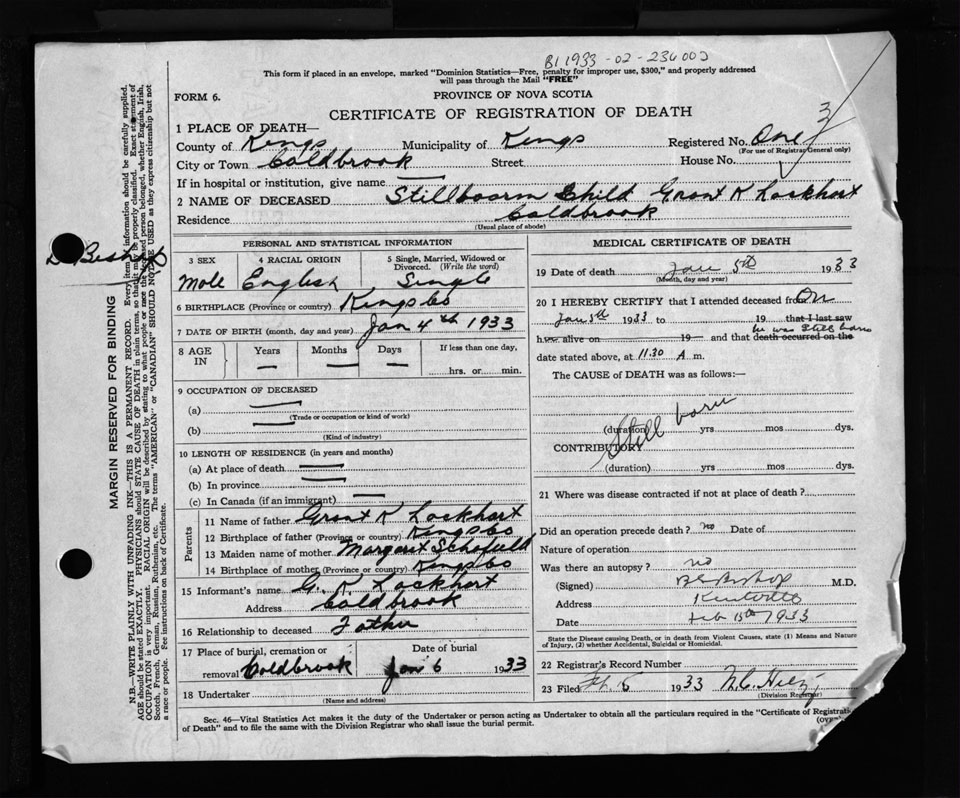 B1 1933-02-236002
This form if placed in an envelope, marked "Dominion Statistics—Free, penalty for improper use, $300," and properly addressed
will pass through the Mail "FREE"
FORM 6.
PROVINCE OF NOVA SCOTIA
3
CERTIFICATE OF REGISTRATION OF DEATH
1 PLACE OF DEATH—
County of Kings Municipality of Kings Registered No. One
(For use of Registrar General only)
City or Town Coldbrook Street House No.
If in hospital or institution, give name
2 NAME OF DECEASED Stillboorn Child Grant K Lockhart
Residence Coldbrook
(Usual place of abode)
PERSONAL AND STATISTICAL INFORMATION
3 SEX 4 RACIAL ORIGIN 5 Single, Married, Widowed or Divorced. (Write the word)
Male English Single
6 BIRTHPLACE (Province or country) Kings Co
7 DATE OF BIRTH (month, day and year) Jan 4th 1933
8 AGE IN Years Months Days If less than one day,
— — — hrs. or min.
9 OCCUPATION OF DECEASED
(a)
(Trade or occupation or kind of work)
(b)
(Kind of industry)
10 LENGTH OF RESIDENCE (in years and months)
(a) At place of death
(b) In province
(c) In Canada (if an immigrant)
Parents
11 Name of father Grant K Lockhart
12 Birthplace of father (Province or country) Kings Co
13 Maiden name of mother Margaret Schofield
14 Birthplace of mother (Province or country) Kings Co
15 Informant's name G. K. Lockhart
Address Coldbrook
16 Relationship to deceased Father
17 Place of burial, cremation or removal Date of burial
Coldbrook Jan 6 1933
18 Undertaker
(Name and address)
MEDICAL CERTIFICATE OF DEATH
19 Date of death Jan 5th 1933
(Month, day and year)
20 I HEREBY CERTIFY that I attended deceased from On
Jan 5th 1933 to 19 that I last saw
he was Still born
h alive on 19 and that death occurred on the
date stated above, at 11.30 A. m.
The CAUSE of DEATH was as follows:—
Still born
(duration) yrs mos dys.
CONTRIBUTORY
(duration) yrs mos dys.
21 Where was disease contracted if not at place of death?
Did an operation precede death? no Date of
Nature of operation
Was there an autopsy? no
(Signed) B E Bishop M.D.
Address Kentville
Date Feb 15th 1933
State the Disease causing Death, or in death from Violent Causes, state (1) Means and Nature
of Injury, (2) whether Accidental, Suicidal or Homicidal.
22 Registrar's Record Number
23 Filed 1933
(Division Registrar)
Sec. 46—Vital Statistics Act makes it the duty of the Undertaker or person acting as Undertaker to obtain all the particulars required in the "Certificate of Registration
of Death" and to file the same with the Division Registrar who shall issue the burial permit.
MARGIN RESERVED FOR BINDING
N.B.—WRITE PLAINLY WITH UNFADING INK—THIS IS A PERMANENT RECORD. Every item of information should be carefully supplied.
AGE should be stated EXACTLY. PHYSICIANS should STATE CAUSE OF DEATH in plain terms, so that it may be properly classified. Exact statement of
OCCUPATION is very important. RACIAL ORIGIN will be described by stating to what people or race the deceased person belonged, whether English, Irish,
Scotch, French, German, Russian, Ruthenian, etc. The terms "AMERICAN" or "CANADIAN" SHOULD NOT BE USED as they express citizenship but not
a race or people. Fee instructions on back of Certificate.